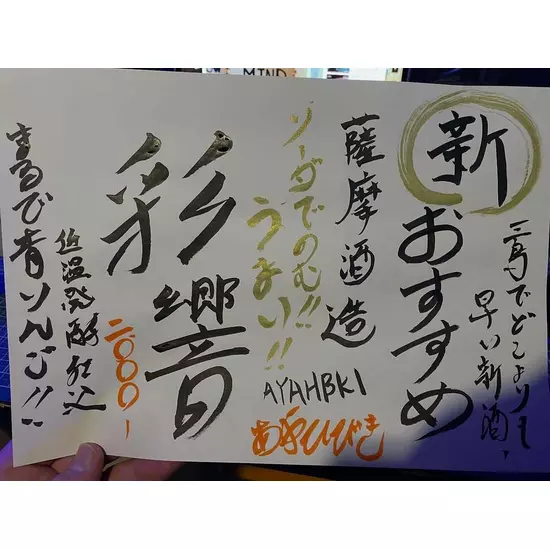 新
おすすめ
三島でどこよりも
早い新酒。
薩摩酒造
ソーダでのむ!!
うまい!!
彩響
AYAHBKI
あやひびき
二〇〇〇ー
低温発酵仕込
まるで青りんご!!
MIND